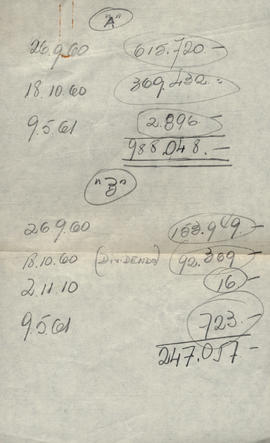 "A"
26.9.60 615.720.-
18.10.60 369.432.-
9.5.61 2.896.-
988.048.-
"B"
26.9.60 153.949.-
18.10.60 (DIVIDENDO) 92.369-
2.11.10 16-
9.5.61 723.-
247.057-